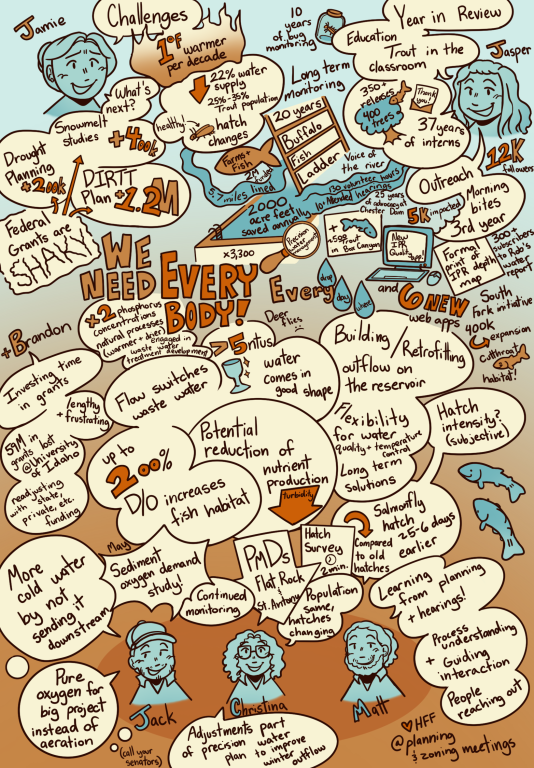 Jamie
Challenges
1°F warmer
per decade
What's
next?
Snowmelt
studies
+400k
Drought
Planning
+200k
DIRTT
Plan +1.2M
Federal
Grants are
SHAKY
22% water
supply
25%-35%
Trout population
healthy
hatch
changes
10
years
of bug
monitoring
Long term
monitoring
20 years
Buffalo
Fish
Ladder
Farms +
Fish
5.7 miles lined
2,000
acre feet
saved annually
x3,300
Precision
water
Voice of
the river
130 volunteer hours
10+ attended hearings
25 years
of advocacy
Chester Dam
Year in Review
Education
Trout in the
classroom
Jasper
350+
releases
400
trees
Thank
you!
37 years
of interns
12K
followers
Outreach
5K impacted
Morning
bites
3rd year
+
4,500
Trout
in Box Canyon
New
IPR
Guide
App!
Formal
print of
IPR depth
map
300+
subscribers
to Rob's
water
report
WE
NEED
EVERY
BODY!
Every
drop
day
where
and 6 NEW
web apps
South
Fork initiative
400k
expansion
Cutthroat
habitat!
+ Brandon
Investing time
in grants
lengthy
+ frustrating
59M in
grants lost
@University
of Idaho
readjusting
with state,
private, etc.
funding
x2 phosphorus
concentrations
natural processes
(warmer + drier)
engaged in
waste water
treatment development
Deer
flies
>5 ntus
water
comes in
good shape
Flow switches
waste water
up to
200%
D/O increases
fish habitat
Potential
reduction of
nutrient
production
turbidity
Building/Retrofitting
outflow on
the reservoir
Flexibility
for water
quality + temperature
control
Long term
solutions
Hatch
intensity?
(subjective)
Salmonfly
hatch
25-6 days
earlier
Compared
to old
hatches
Hatch
Survey
2min.
PMDs
Flat Rock
St. Anthony
Population
same,
hatches
changing
May
Sediment
oxygen demand
study!
Continued
monitoring
More
cold water
by not
sending it
downstream
Pure
oxygen for
big project
instead of
aeration
Learning
from planning
+ hearings!
Process
understanding
+ Guiding
interaction
People
reaching out
Jack
Christina
Matt
(call your
senators)
Adjustments part
of precision water
plan to improve
winter outflow
♡ HFF
@planning
& zoning meetings